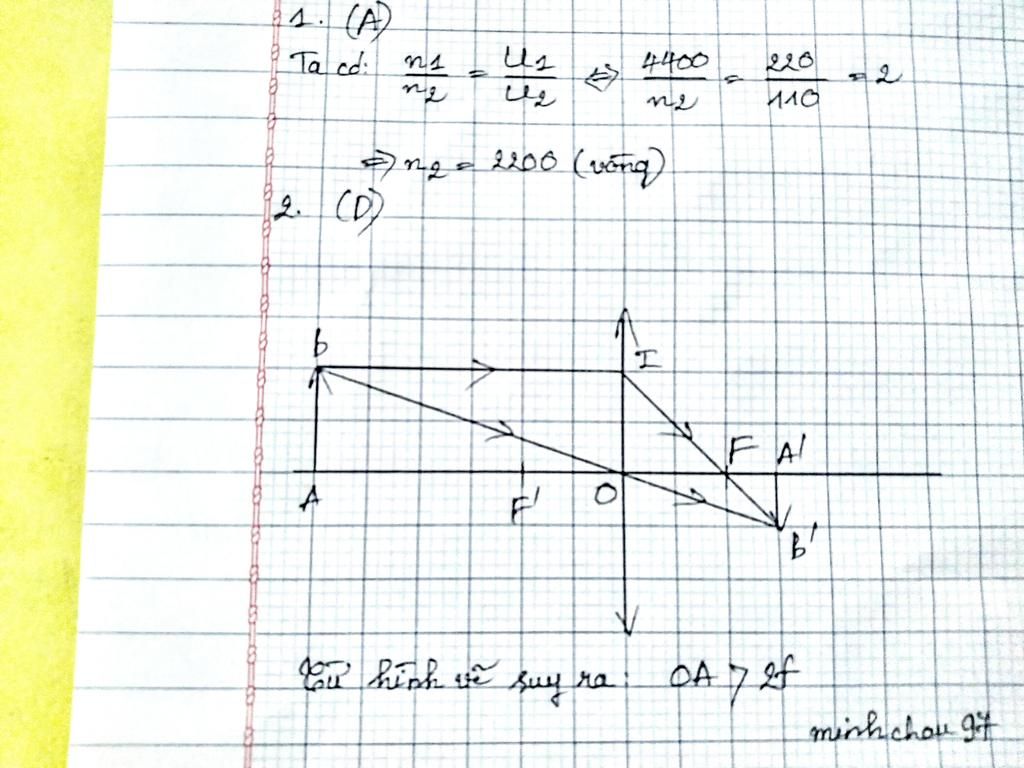 1. (A)
Ta có: n1/n2 = U1/U2 ⇔ 4400/n2 = 220/110 = 2
⇒ n2 = 2200 (vòng)
2. (D)
B I
F A'
A F' O
B'
Từ hình vẽ suy ra: OA > 2f
minhchau97